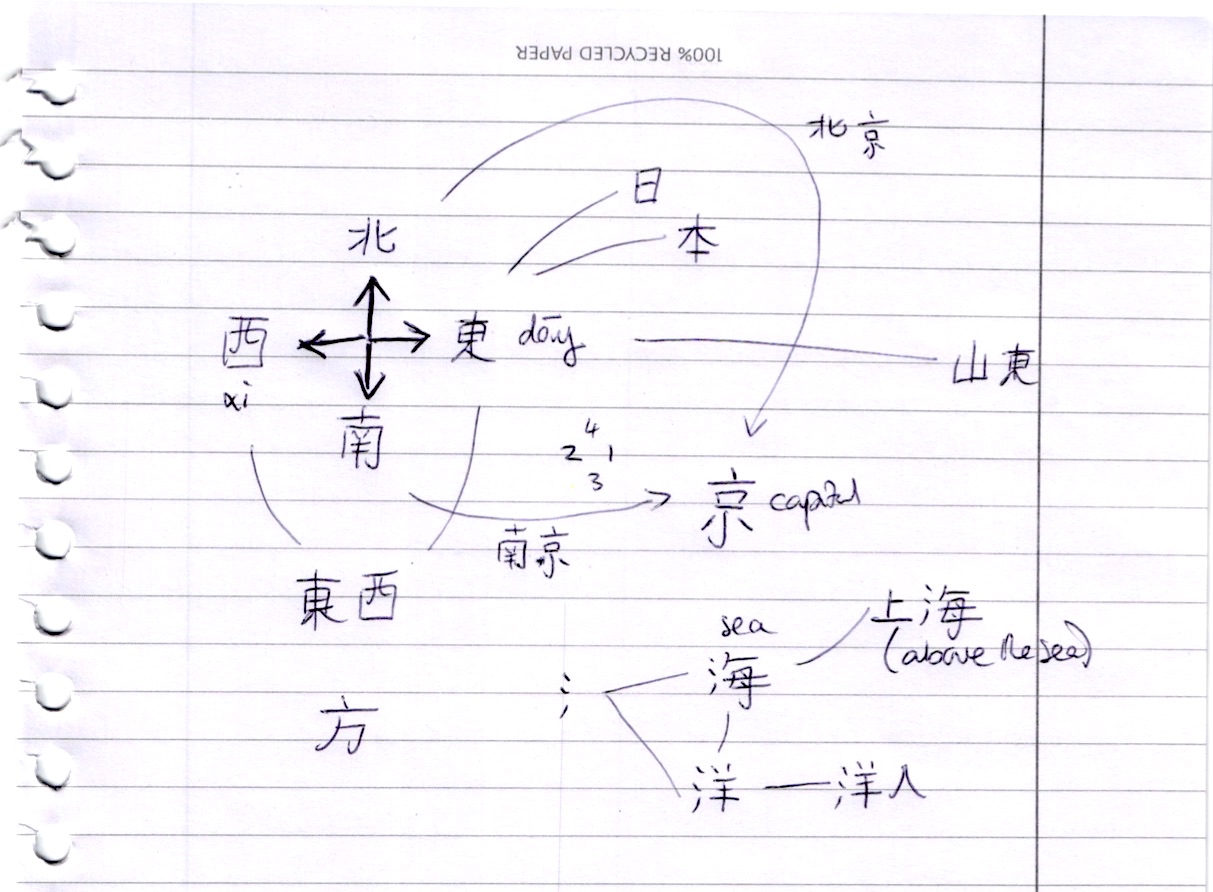 100% RECYCLED PAPER
北京
日
本
北
西
東 dōng
山東
xi
南
4
2 1
3
京 capital
南京
東西
上海
(above the sea)
sea
海
氵
方
洋 — 洋人